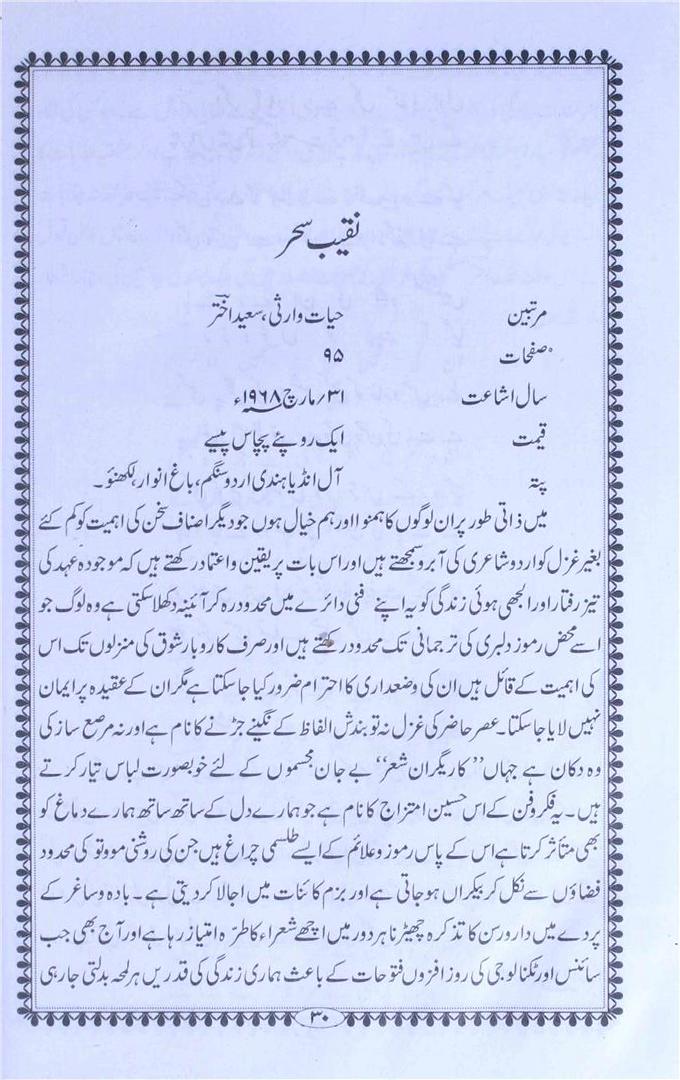 نقیب سحر
مرتبین حیات وارثی، سعید اختر
صفحات ۹۵
سال اشاعت ۳۱؍ مارچ ۱۹۶۸ء
قیمت ایک روپئے پچاس پیسے
پتہ آل انڈیا ہندی اردو سنگم، باغ انوار، لکھنؤ۔
میں ذاتی طور پر ان لوگوں کا ہمنوا اور ہم خیال ہوں جو دیگر اصناف سخن کی اہمیت کو کم کئے
بغیر غزل کو اردو شاعری کی آبرو سمجھتے ہیں اور اس بات پر یقین و اعتماد رکھتے ہیں کہ موجودہ عہد کی
تیز رفتار اور الجھی ہوئی زندگی کو یہ اپنے فنی دائرے میں محدود رہ کر آئینہ دکھلا سکتی ہے وہ لوگ جو
اسے محض رموز دلبری کی ترجمانی تک محدود رکھتے ہیں اور صرف کاروبار شوق کی منزلوں تک اس
کی اہمیت کے قائل ہیں ان کی وضعداری کا احترام ضرور کیا جا سکتا ہے مگر ان کے عقیدہ پر ایمان
نہیں لایا جا سکتا۔ عصر حاضر کی غزل نہ تو بندش الفاظ کے نگینے جڑنے کا نام ہے اور نہ مرصع ساز کی
وہ دکان ہے جہاں ’’کاریگران شعر‘‘ بے جان مجسموں کے لئے خوبصورت لباس تیار کرتے
ہیں۔ یہ فکر و فن کے اس حسین امتزاج کا نام ہے جو ہمارے دل کے ساتھ ساتھ ہمارے دماغ کو
بھی متأثر کرتا ہے اس کے پاس رموز و علائم کے ایسے طلسمی چراغ ہیں جن کی روشنی موو تو کی محدود
فضاؤں سے نکل کر بیکراں ہو جاتی ہے اور بزم کائنات میں اجالا کر دیتی ہے۔ بادہ و ساغر کے
پردے میں دار و رسن کا تذکرہ چھیڑنا ہر دور میں اچھے شعراء کا طرّہ امتیاز رہا ہے اور آج بھی جب
سائنس اور ٹکنالوجی کی روز افزوں فتوحات کے باعث ہماری زندگی کی قدریں ہر لمحہ بدلتی جا رہی
۳۰